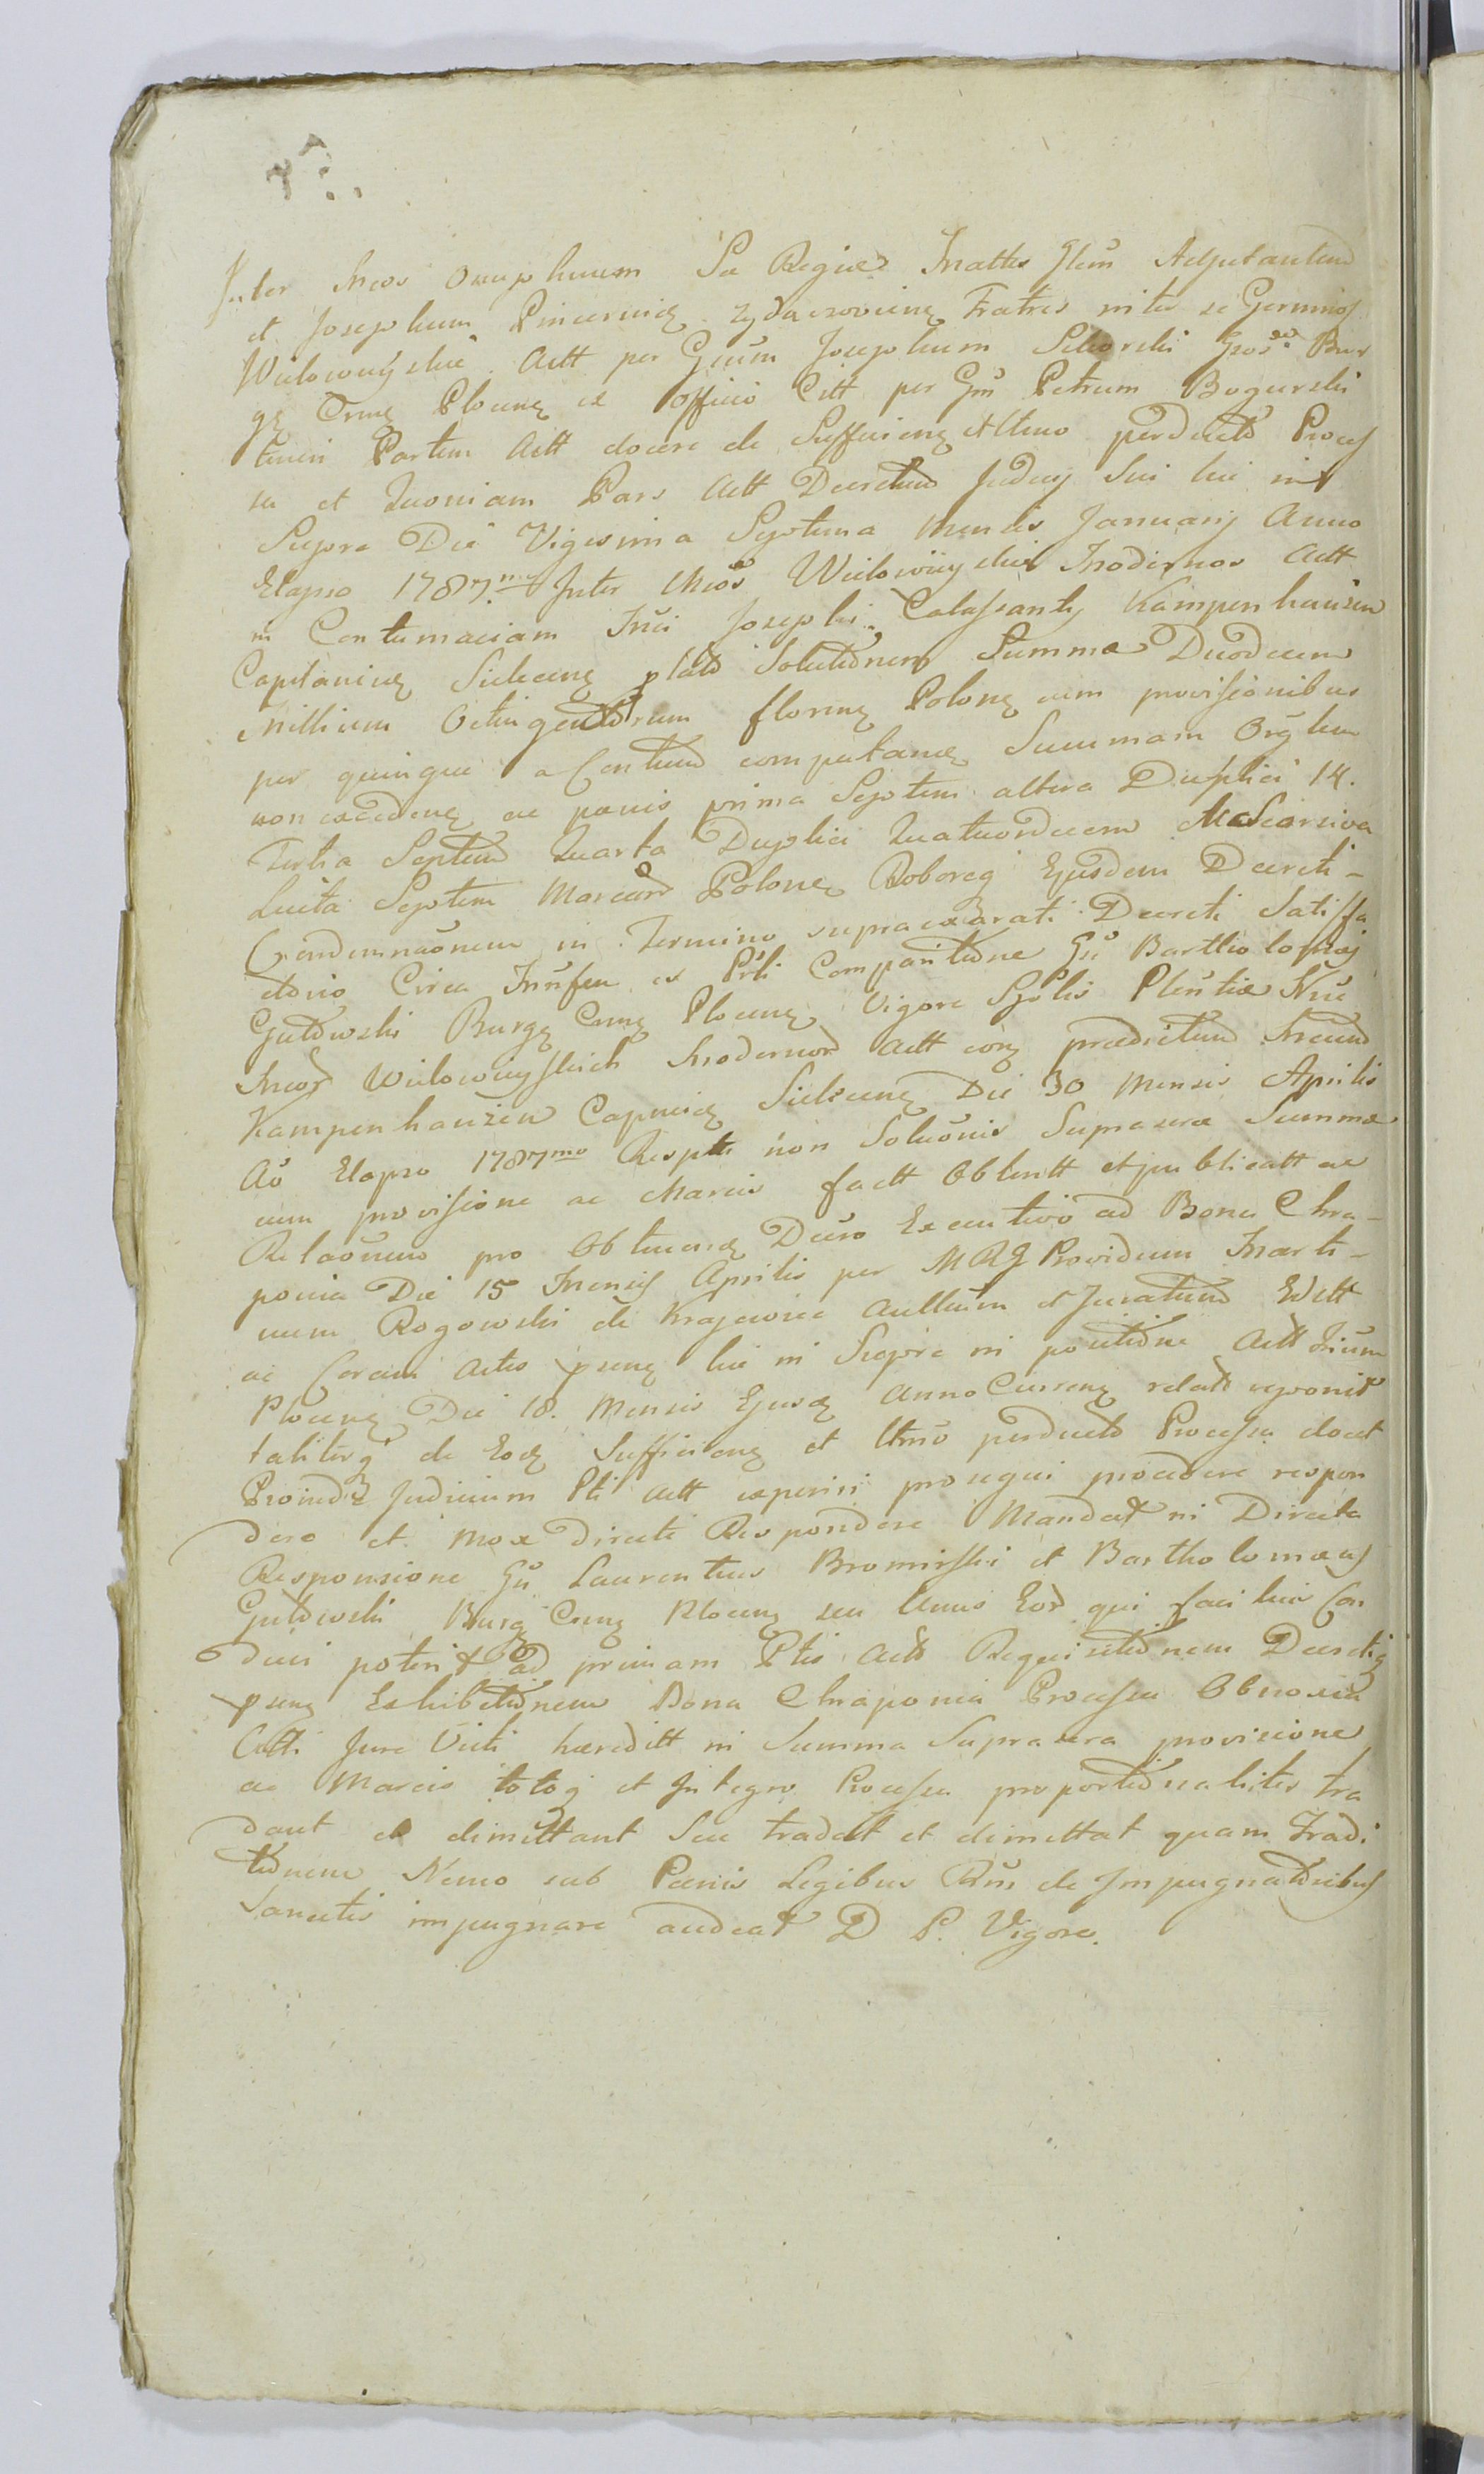 Inter Mcos Onuphrium Sa Regiæ Mattis Glem Adjutantem
et Josephum Pincernicz Zydaczoviens Fratres inter se Germnos
Wielowieyskie Actt per Gsum Josephum Sikorski Bur
gs Crns Plocens ex officio Citt per Gm Petrum Bogurski
teneri Partem Actt docere de Sufficiens et Ultimo perducto Proces
su et Quoniam Pars Actt Decretum Judicij Sui hic in
Supra Die Vigesima Septima Mensis Januarij Anno
Elapso 1787mo Inter Mcos Wielowieyskie Modernos Actt
in Contumaciam Mci Josephi Calassantij Kampenhauzen
Capitanius Sielcens plato Solutionem Summæ Duodecem
Millium Octingentorum florens Polons cum provisionibus
per quinque a Centum computans Summam Orglem
non excedens ac pœnis prima Septem altera Duplici 14.
Tertia Septem Quarta Duplici Quatuordecem
Luita Septem Marcar Polons Roboreq Ejusdem Decreti
Condemnaonem in Termino supraexarati Decreti Satisfa
ctorio Circa ex Prti Comparitione Gsi Bartholomæj
Gutowski Burgs Crns Plocens Vigore Splis Plentiæ Nne
Mcor Wielowieyskich Modernor Actt cons prædictum Mcum
Kampenhauzen Capneics Sielcens Die 30 Mensis Aprilis
Ao Elapso 1787mo Respctu non Soluonis Supraxræ Summæ
cum provisione ac Marcis factt Obtentt et publicatt ac
Relaonem pro Obtinens Decro Executivo ad Bona Chra-
ponia Die 15 Mensis Aprilis per MRG Providum Marti-
num Rogowski de Krajewice Aulleum et Juratum Edtt
ac Coram Actis psens hic in Supra in positione Actt
Plocens Die 18. Mensis Ejusd Anno Currens relato reponit
taliterq de Eod Sufficiens et Utmo perducto Processu docet
Proinde Judicium Pti Actt experiri prosequi procedere respon
dere et Mox Directe Respondere Mandat in Directa
Responsione Gsi Laurentius Bromirski et Bartholomæus
Gutowski Burg Crns Plocens seu Unus Eor qui facilius Con
duci poterit ad primam Ptis Actt Requisitionem Decretiq
psens Exhibitionem Bona Chraponia Processu Obnoxia
Citti Jure Victi hereditt in Summa Supraxra provisione
ac Marcis totoq et Integro Processu proportionaliter tra
dant et dimittant Seu tradat et dimittat quam Tradi
tionem Nemo sub Pœnis Legibus Rni de Impugnatoribus
Sancitis impugnare audeat D P. Vigore.